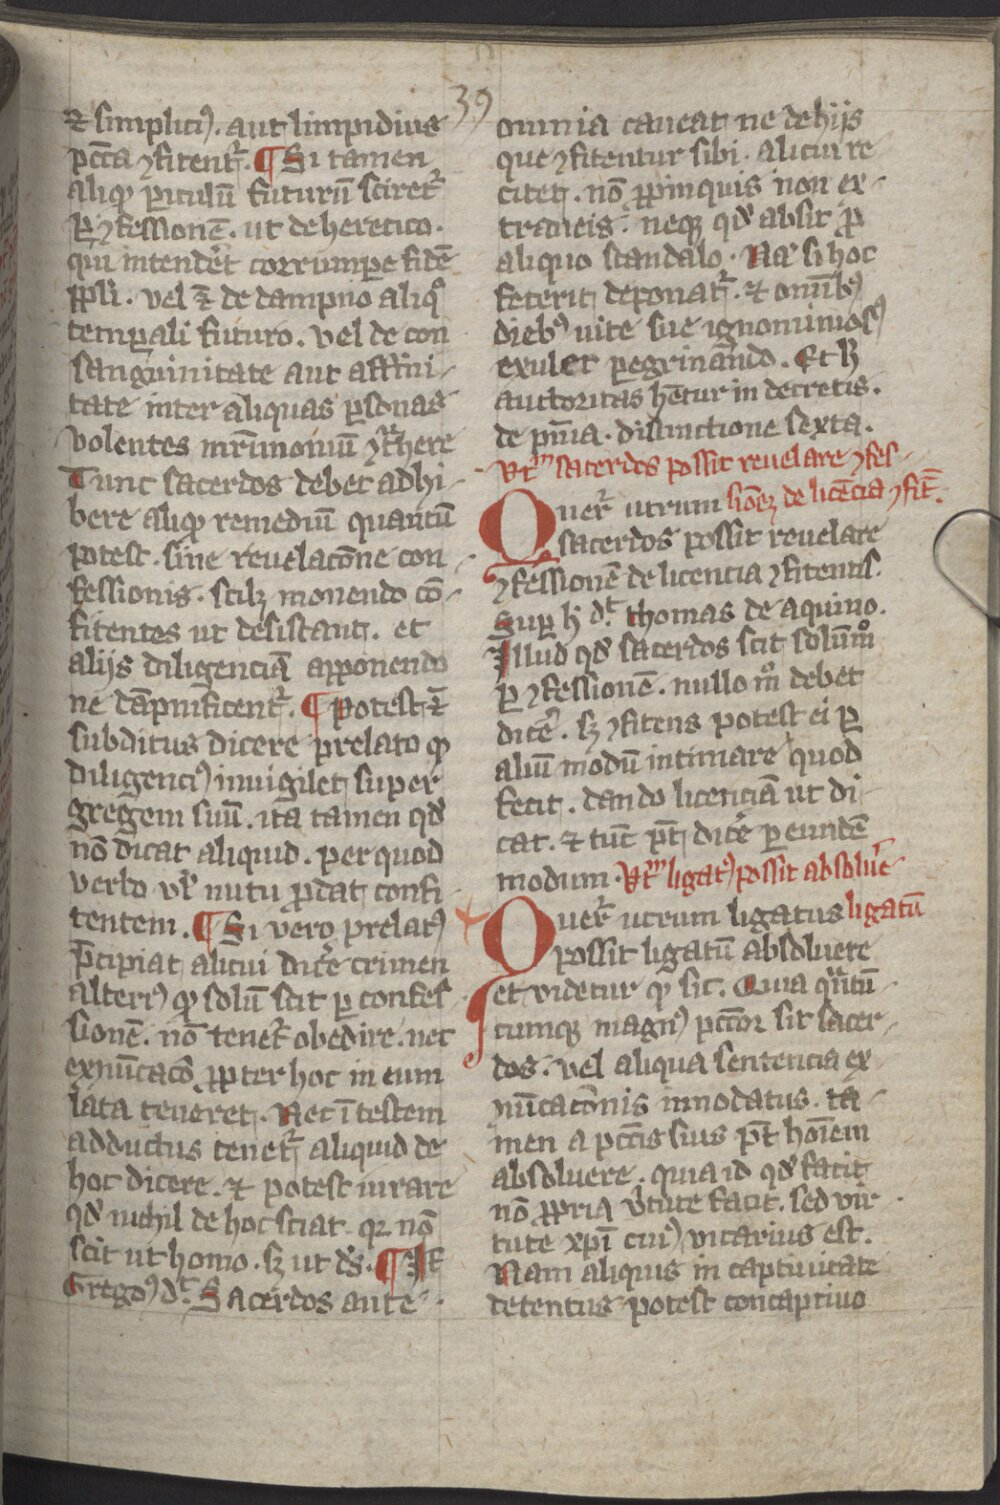 39
⁊ simplici⁹. aut limpidius
pcc̄a ꝯfitent᷑. ¶ Si tamen
aliq̄ ꝑiculū futurū sciret᷑
ꝑ ꝯfessionē. ut de heretico.
qui intendēt corrumpe fidē
ppl̄i. vel ⁊̄ de dampno aliq̊
temꝑali futuro. vel de con
sanguinitate aut affini-
tate inter aliquas ꝑsonas
volentes mr̄imoniū ꝯt̾here
Tunc sacerdos debet adhi-
bere aliq̄ remediū quantū
potest. sine reuelacōne con-
fessionis. scilꝫ monendo cō-
fitentes ut desistant. et
alijs diligenciā apponendo
ne dāpnificent᷑. ¶ Potest ⁊̄
subditus dicere prelato ꝙ
diligenci⁹ inuigilet super
gregem suū. ita tamen qd̾
nō dicat aliquid. per quod
verbo vl̾ nutu ꝓdat confi-
tentem. ¶ Si vero prelat⁹
p̄cipiat alicui dic̾e crimen
alteri⁹ ꝙ solū scit ꝑ confes-
sionē. nō tenet᷑ obedire. nec
exnūcacō ꝓpter hoc in eum
lata teneret. Nec ī testem
adductus tenet᷑ aliquid de
hoc dicere. ⁊ potest iurare
qd̾ nichil de hoc sciat qꝛ nō
scit ut homo. sꝫ ut ds̄. ¶ It̄
Grego⁹ d᷑. Sacerdos ante
omnia caueat ne de hijs
que ꝯfitentur sibi. alicui re
citet. nō ꝓpinquis non ex-
traneis. neqꝫ qd̾ absit ꝓ
aliquo scandalo. Nā si hoc
fecerit deponat᷑. ⁊ omīb⁹
dieb⁹ uite sue ignominios⁹
exulet ꝑegrinando. Et h̾
auctoritas hētur in decretis.
de pn̄ia. distinctione sexta.
Vt᷑m sacerdos possit reuelare ꝯfes-
Quer᷑ utrum siōeꝫ de licēcia ꝯfit̄.
sacerdos possit reuelare
ꝯfessionē de licencia ꝯfitentis.
Suꝑ h̾ d᷑ thomas de aquino.
Illud qd̾ sacerdos scit solūm̊
ꝑ ꝯfessionē. nullo m̊ debet
dic̾e. sꝫ ꝯfitens potest ei ꝑ
aliū modū intimare quod
fecit. dando licenciā ut di-
cat. ⁊ tūc pt̄ dic̾e ꝑ eundē
modum. Vt᷑m ligat⁹ possit absolu̾e
Quer᷑ utrum ligatus ligatū
possit ligatū absoluere
et videtur ꝙ sic. Quia qͣntū-
cumqꝫ magn⁹ pcc̄or sit sacer-
dos. vel aliqua sentencia ex-
ꝯm̄cacōnis innodatus. ta-
men a pcc̄is suis pt̄ hoīem
absoluere. quia id qd̾ facit
nō ꝓpria v̾tute facit. sed vir-
tute xp̄i cui⁹ vicarius est.
Nam aliquis in captiuitate
detentus potest concaptiuo